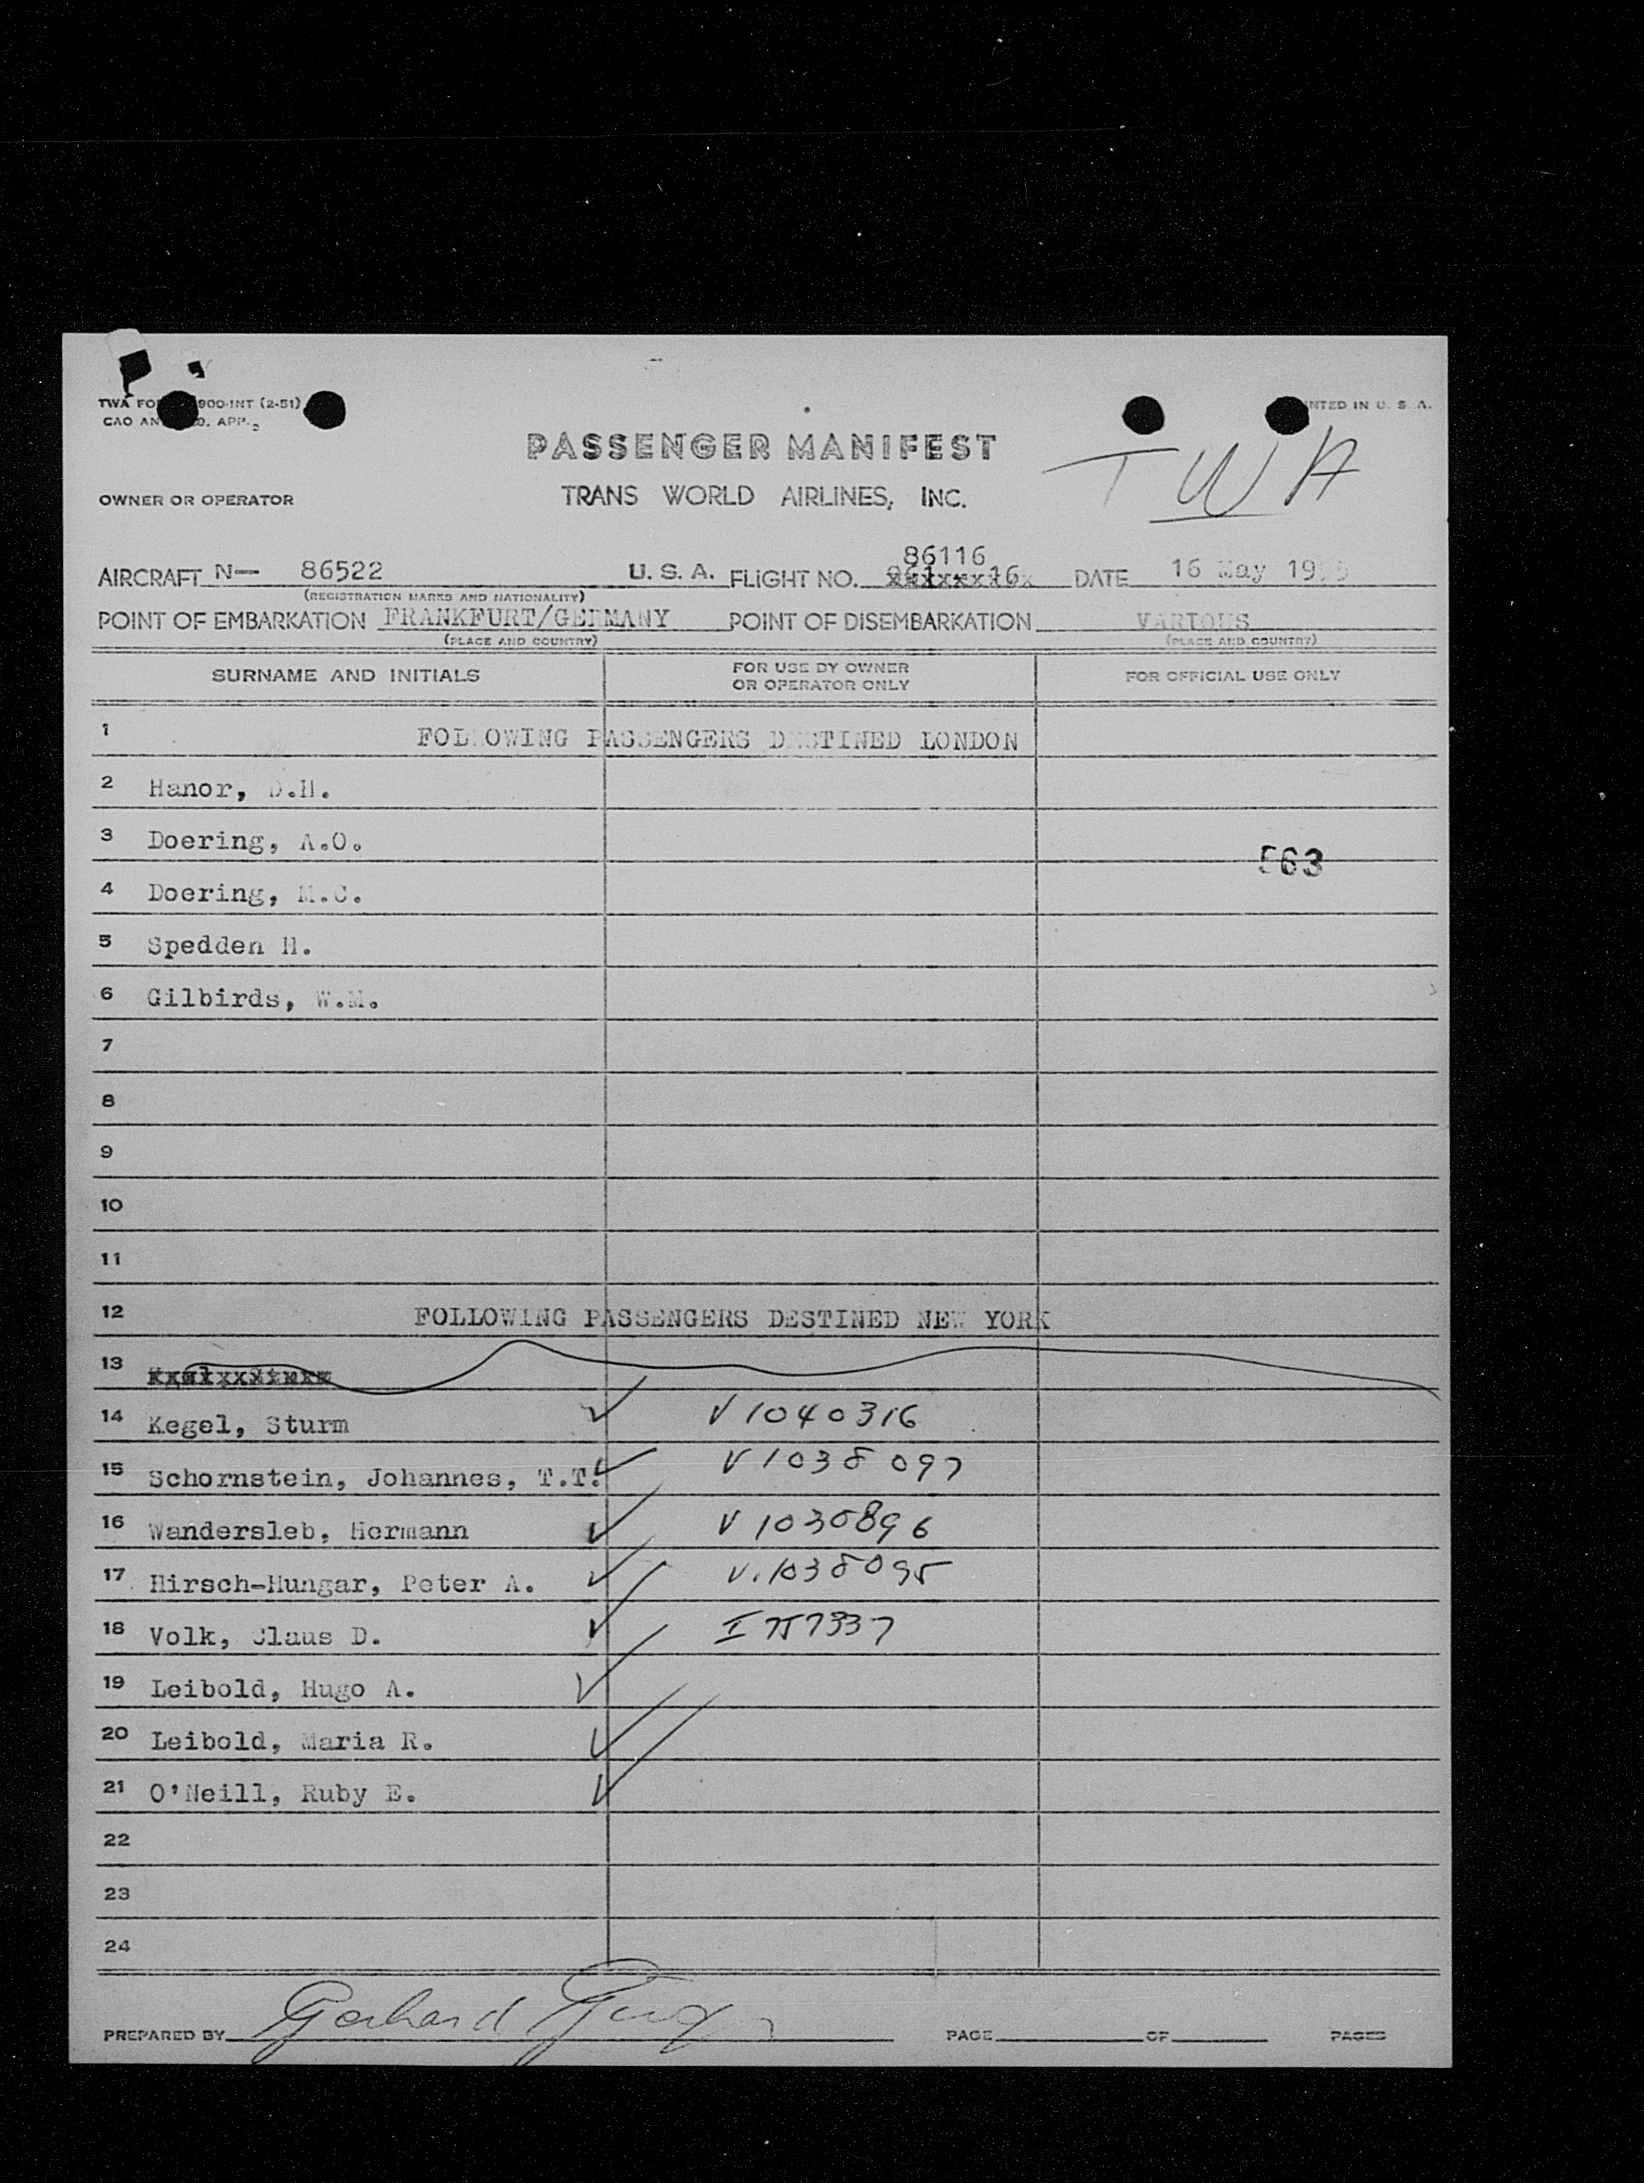 TWA FO 900-INT (2-51) NTED IN U. S. A.
CAO AN D. APP.
PASSENGER MANIFEST
TWA
OWNER OR OPERATOR TRANS WORLD AIRLINES, INC.
86116
AIRCRAFT N— 86522 U. S. A. FLIGHT NO. DATE 16 May 19
(REGISTRATION MARKS AND NATIONALITY)
POINT OF EMBARKATION FRANKFURT/GERMANY POINT OF DISEMBARKATION VARIOUS
(PLACE AND COUNTRY) (PLACE AND COUNTRY)
SURNAME AND INITIALS FOR USE BY OWNER OR OPERATOR ONLY FOR OFFICIAL USE ONLY
1 FOLLOWING PASSENGERS DESTINED LONDON
2 Hanor, D.H.
3 Doering, A.O.
563
4 Doering, M.C.
5 Spedden H.
6 Gilbirds, W.M.
7
8
9
10
11
12 FOLLOWING PASSENGERS DESTINED NEW YORK
13
14 Kegel, Sturm V1040316
15 Schornstein, Johannes, T.T. V1038097
16 Wandersleb, Hermann V1038896
17 Hirsch-Hungar, Peter A. V.1038095
18 Volk, Claus D. I 757337
19 Leibold, Hugo A.
20 Leibold, Maria R.
21 O'Neill, Ruby E.
22
23
24
PREPARED BY Gerhard PAGE OF PAGES